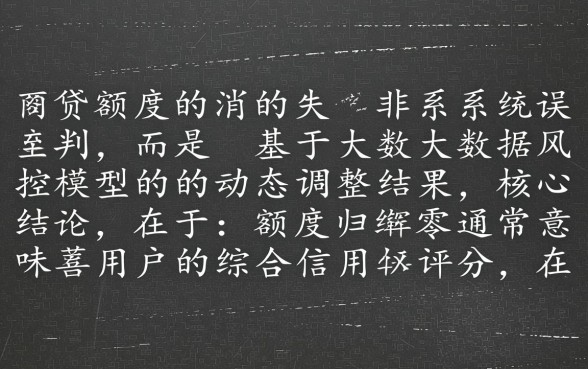 商贷额度的消的失 非系系统误
至判，而是 基于大数大数据风
控模型的的动态调整结果，核心
结论，在于：额度归零通常意
味善用户的综合信用评分，在